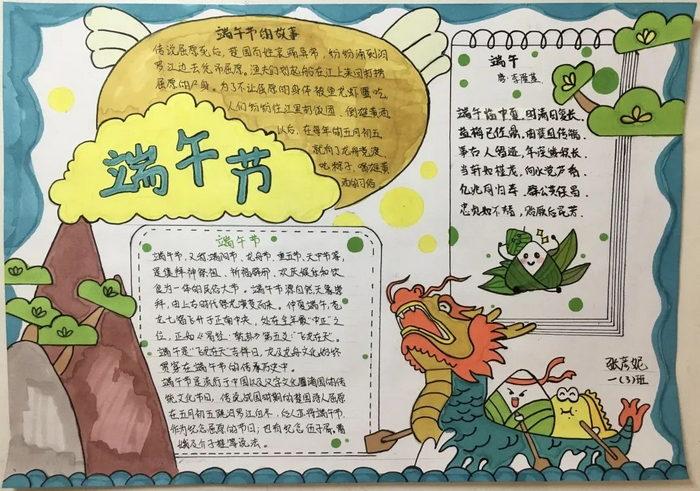 端午节的故事
传说屈原死后，楚国百姓哀痛异常，纷纷涌到汨
罗江边去凭吊屈原。渔夫们划起船只在江上来回打捞
屈原的尸身。为了不让屈原的身体被鱼龙虾蟹吃，
人们纷纷往江里扔饭团，倒雄黄酒
以后，在每年的五月初五
就有了龙舟竞渡、
吃粽子、喝雄黄
酒的习俗
端午节
端午
唐·李隆基
端午临中夏，时清日复长。
盐梅已佐鼎，曲糵且传觞。
事古人留迹，年深缕积长。
当轩知槿茂，向水觉芦香。
亿兆同归寿，群公共保昌
忠贞如不替，贻厥后昆芳。
端午节
端午节，又称端阳节、龙舟节、重五节、天中节等，
是集拜神祭祖、祈福辟邪、欢庆娱乐和饮
食为一体的民俗大节。端午节源自天象崇
拜，由上古时代祭龙演变而来。仲夏端午，苍
龙七宿飞升于正南中央，处在全年最“中正”之
位，正如《易经·乾卦》第五爻：“飞龙在天”。
端午是“飞龙在天”吉祥日，龙及龙舟文化始终
贯穿在端午节的传承历史中。
端午节是流行于中国以及汉字文化圈诸国的传
统文化节日，传说战国时期的楚国诗人屈原
在五月初五跳汨罗江自尽，后人亦将端午节
作为纪念屈原的节日；也有纪念伍子胥、曹
娥及介子推等说法。
张彦妮
一(3)班